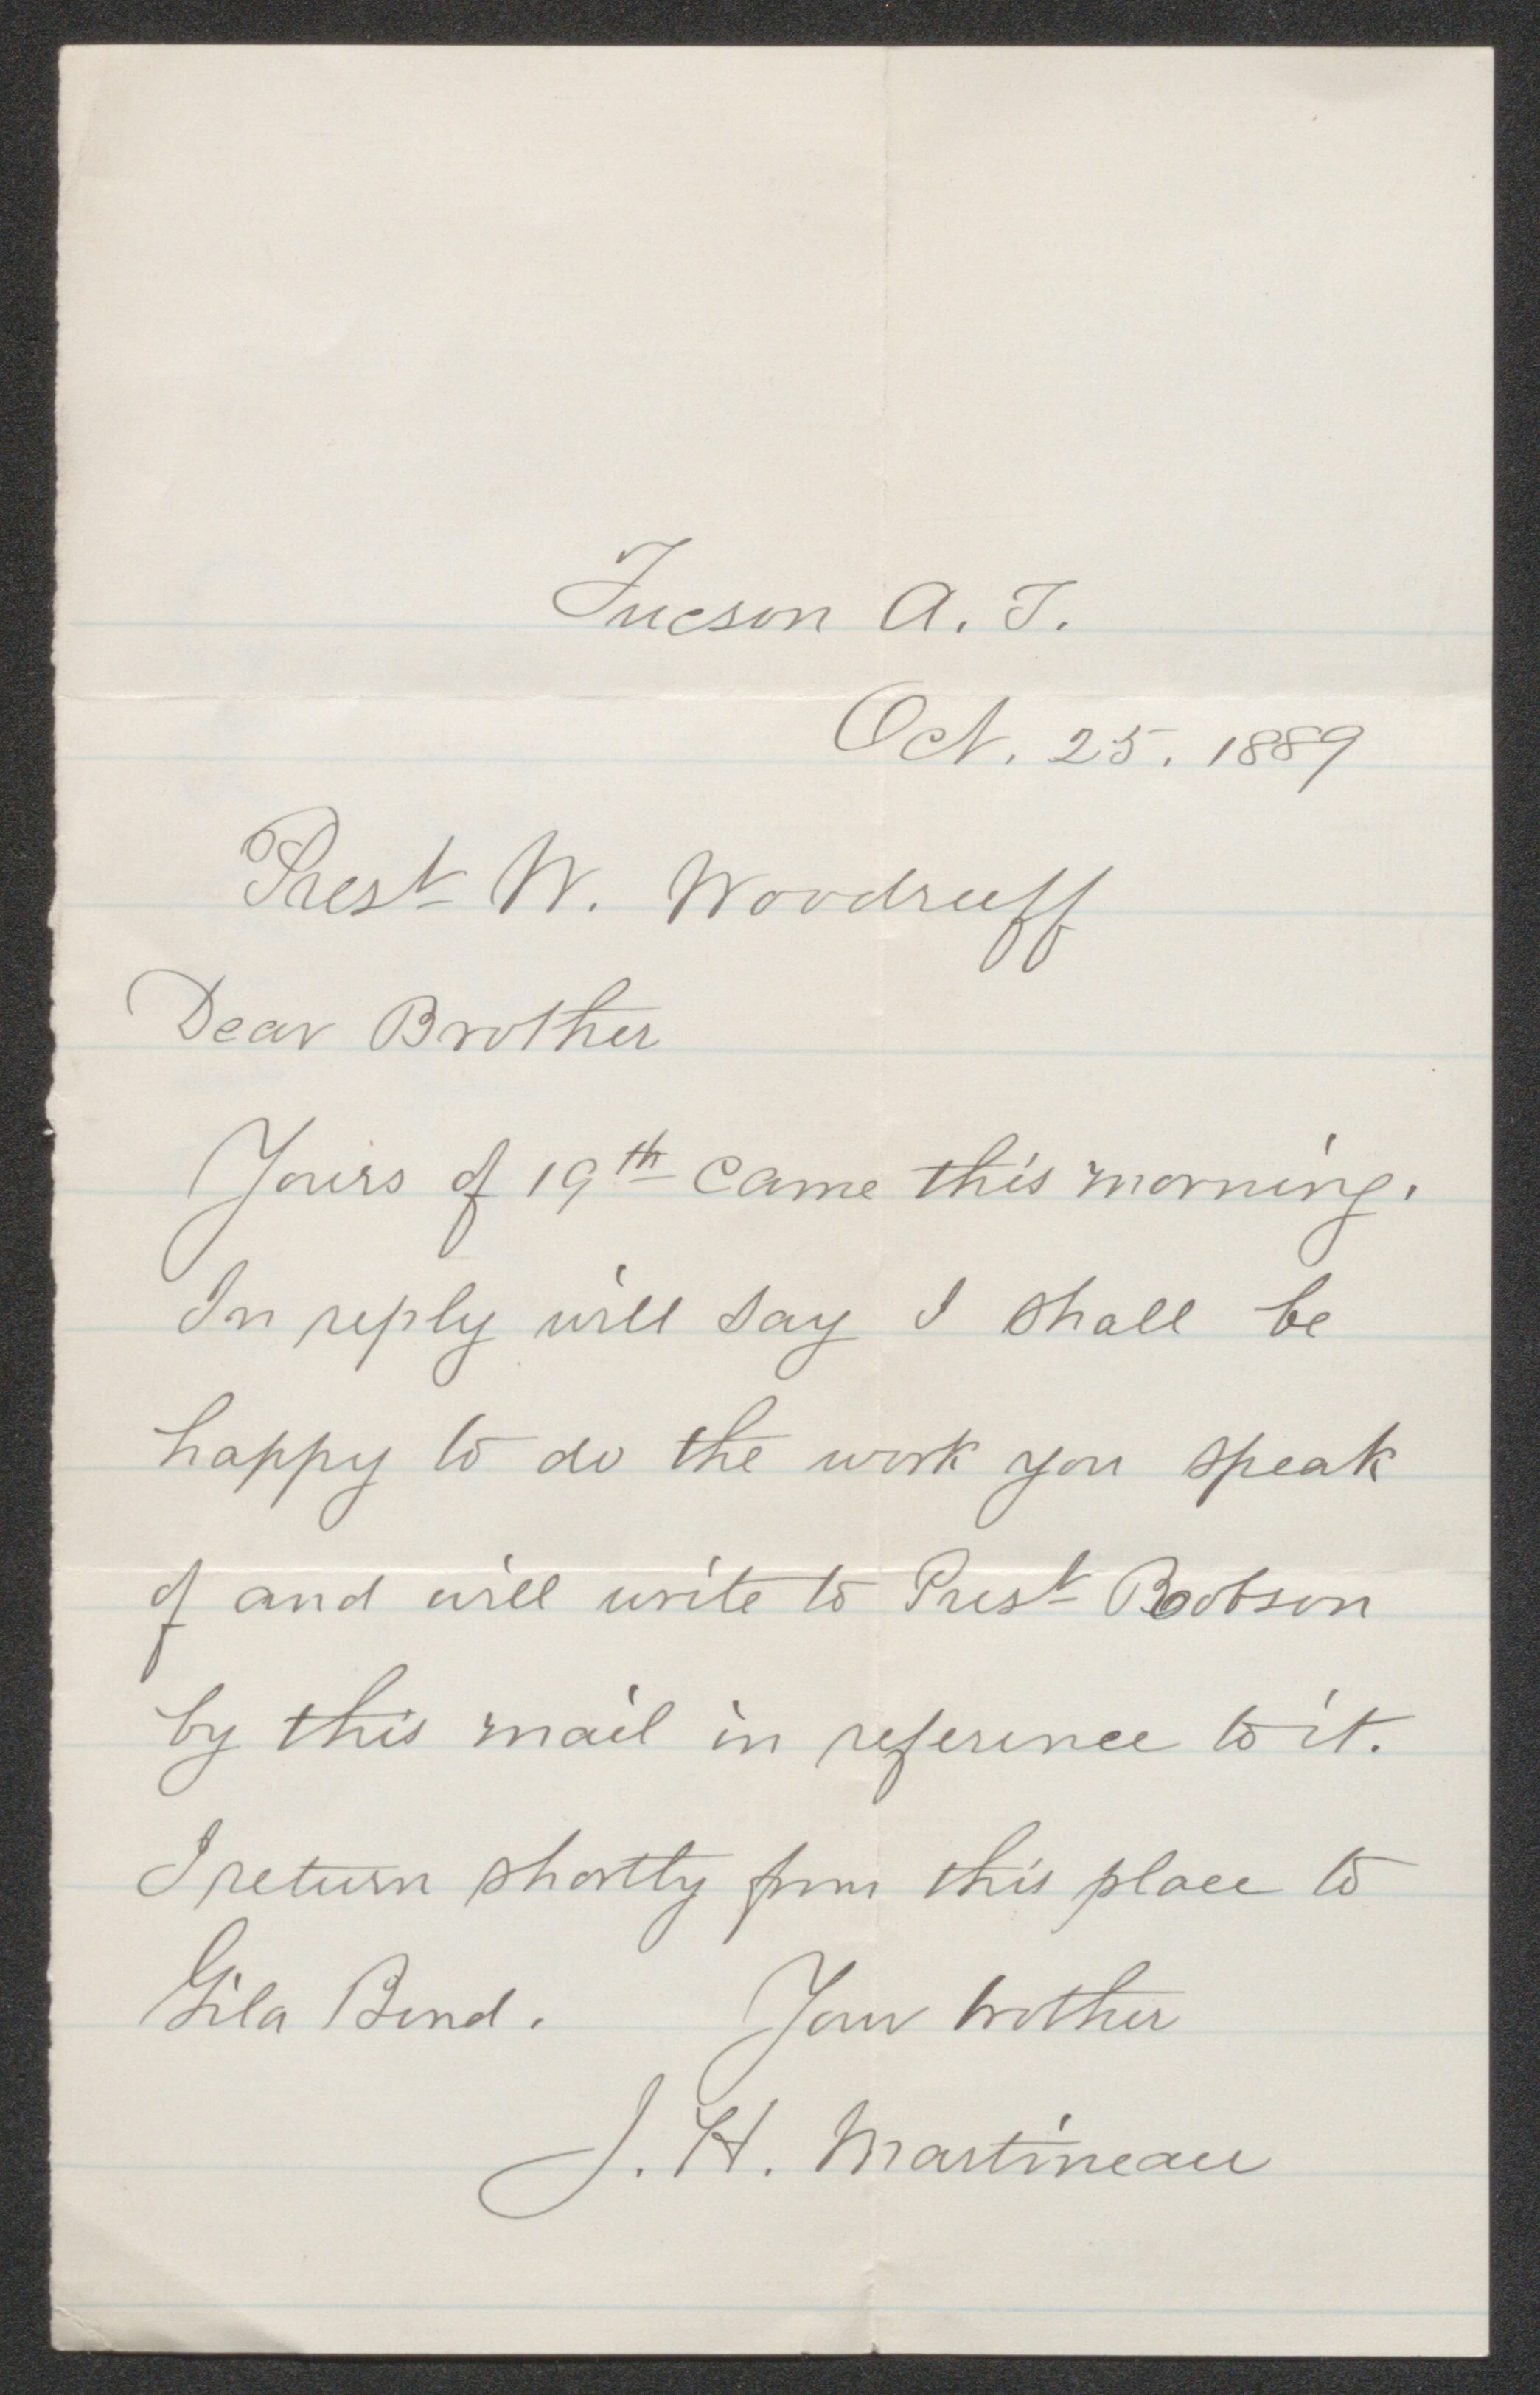 Tucson A. T.
Oct. 25. 1889
Prest W. Woodruff
Dear Brother
Yours of 19th came this morning.
In reply will say I shall be
happy to do the work you speak
of and will write to Prest Robson
by this mail in reference to it.
I return shortly from this place to
Gila Bend. Your brother
J. H. Martineau